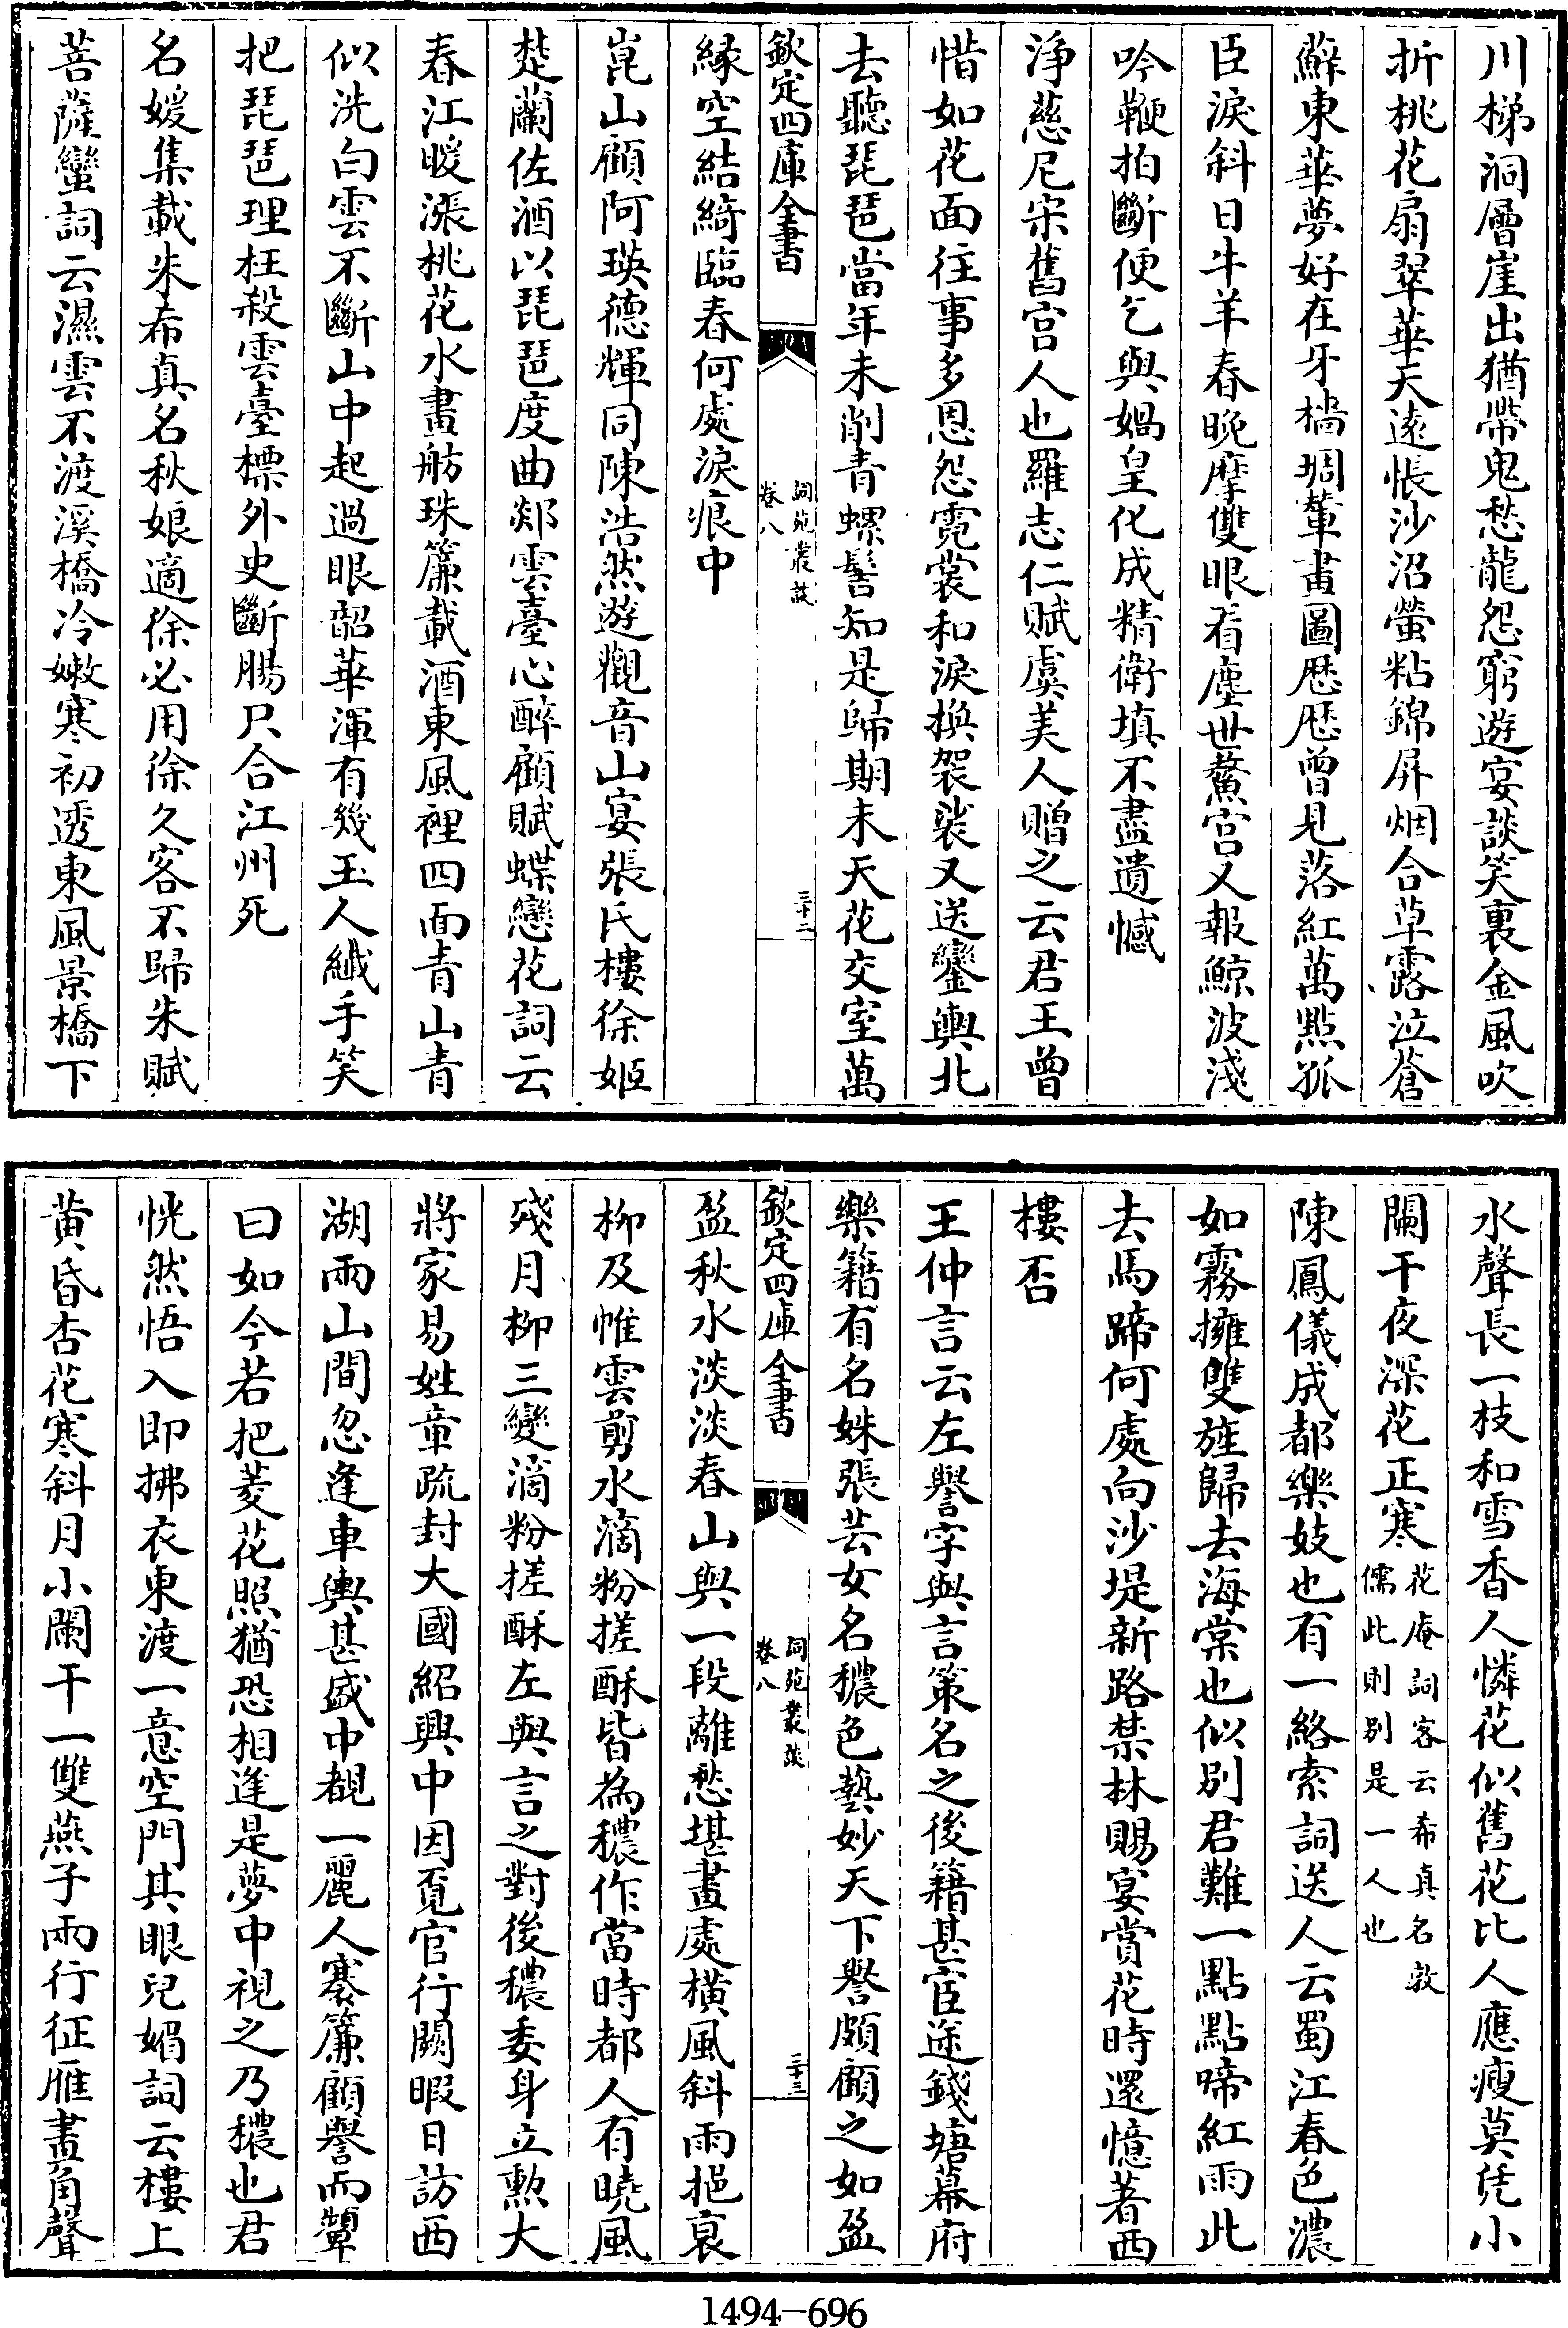 川梯洞層崖出猶帶鬼愁龍怨窮遊宴談笑裏金風吹
折桃花扇翠華天遠悵沙沼螢粘錦屏烟合草露泣蒼
蘚東華夢好在牙檣琱輦畫圖歴歴曽見落紅萬㸃孤
臣淚斜日牛羊春晚摩雙眼看塵世鰲宫又報鯨波淺
吟鞭拍斷便乞與媧皇化成精衛填不盡遺憾
浄慈尼宋舊宫人也羅志仁賦虞美人贈之云君王曾
惜如花面往事多恩怨霓裳和淚換袈裟又送鑾輿北
去聽琵琶當年未削青螺髻知是歸期未天花交室萬
欽定四庫全書
詞苑叢談
卷八
三十二
緣空結綺臨春何處淚痕中
崑山顧阿瑛德輝同陳浩然遊觀音山宴張氏樓徐姬
楚蘭佐酒以琵琶度曲郯雲臺心醉顧賦蝶戀花詞云
春江暖漲桃花水畫舫珠簾載酒東風裡四面青山青
似洗白雲不斷山中起過眼韶華渾有幾玉人纖手笑
把琵琶理枉殺雲臺標外史斷腸只合江州死
名媛集載朱希真名秋娘適徐必用徐久客不歸朱賦
菩薩蠻詞云濕雲不渡溪橋冷嫩寒初透東風景橋下
水聲長一枝和雪香人憐花似舊花比人應瘦莫凭小
闌干夜深花正寒花庵詞客云希真名敦儒此則别是一人也
陳鳳儀成都樂妓也有一絡索詞送人云蜀江春色濃
如霧擁雙旌歸去海棠也似别君難一點點啼紅雨此
去馬蹄何處向沙堤新路禁林賜宴賞花時還憶著西
樓否
王仲言云左譽字與言策名之後籍甚宦途錢塘幕府
樂籍有名姝張芸女名穠色藝妙天下譽頗顧之如盈
欽定四庫全書
詞苑叢談
卷八
三十三
盈秋水淡淡春山與一段離愁堪畫處橫風斜雨挹衰
柳及帷雲剪水滴粉搓酥皆為穠作當時都人有曉風
殘月柳三變滴粉搓酥左與言之對後穠委身立勲大
將家易姓章疏封大國紹興中因覓官行闕暇日訪西
湖兩山間忽逢車輿甚盛中覩一麗人褰簾顧譽而顰
曰如今若把菱花照猶恐相逢是夢中視之乃穠也君
恍然悟入即拂衣東渡一意空門其眼兒媚詞云樓上
黄昏杏花寒斜月小闌干一雙燕子兩行征雁畫角聲
1494-696